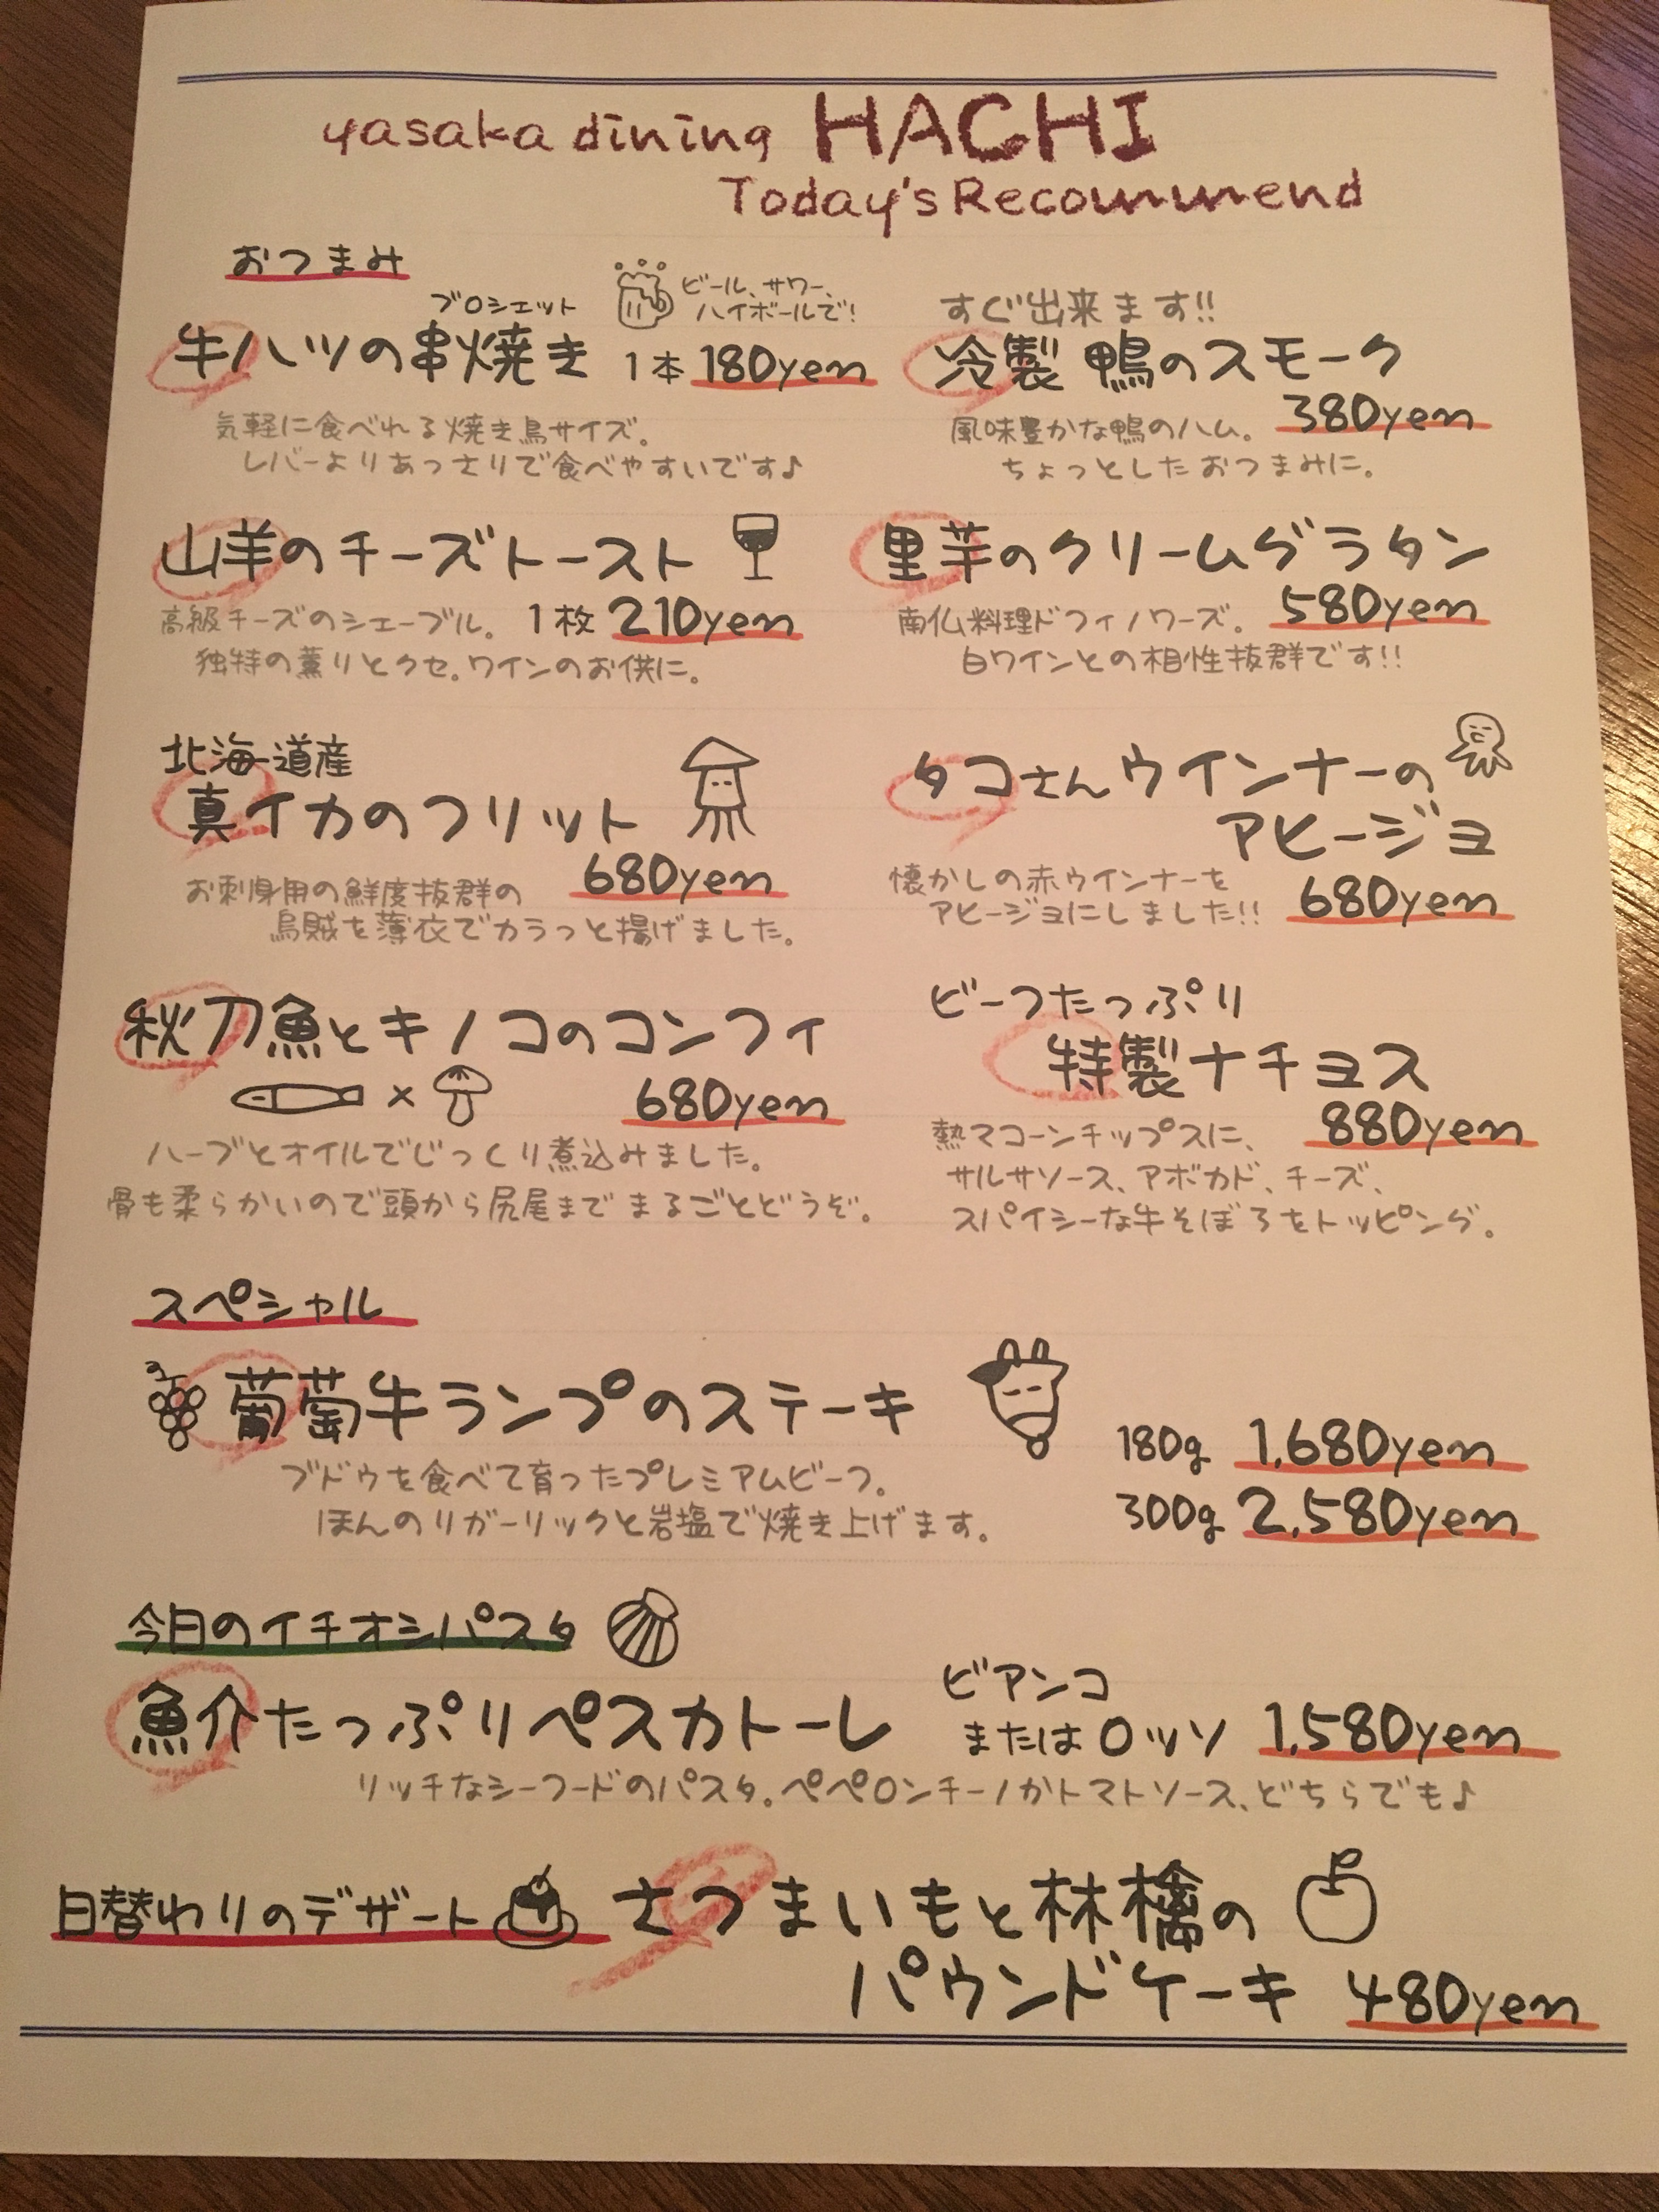 yasaka dining HACHI
Today's Recommend
おつまみ
ブロシェット
ビール、サワー、
ハイボールで!
牛ハツの串焼き 1本 180yen
気軽に食べれる焼き鳥サイズ。
レバーよりあっさりで食べやすいです♪
すぐ出来ます!!
冷製 鴨のスモーク
380yen
風味豊かな鴨のハム。
ちょっとしたおつまみに。
山羊のチーズトースト
高級チーズのシェーブル。 1枚 210yen
独特の薫りとクセ。ワインのお供に。
里芋のクリームグラタン
580yen
南仏料理ドフィノワーズ。
白ワインとの相性抜群です!!
北海道産
真イカのフリット
680yen
お刺身用の鮮度抜群の
烏賊を薄衣でカラっと揚げました。
タコさんウインナーの
アヒージョ
懐かしの赤ウインナーを
アヒージョにしました!! 680yen
秋刀魚とキノコのコンフィ
× 680yen
ハーブとオイルでじっくり煮込みました。
骨も柔らかいので頭から尻尾までまるごとどうぞ。
ビーフたっぷり
特製ナチョス
880yen
熱々コーンチップスに、
サルサソース、アボカド、チーズ、
スパイシーな牛そぼろをトッピング。
スペシャル
葡萄牛ランプのステーキ
ブドウを食べて育ったプレミアムビーフ。
ほんのりガーリックと岩塩で焼き上げます。
180g 1,680yen
300g 2,580yen
今日のイチオシパスタ
魚介たっぷりペスカトーレ
ビアンコ
またはロッソ 1,580yen
リッチなシーフードのパスタ。ペペロンチーノかトマトソース、どちらでも♪
日替わりのデザート さつまいもと林檎の
パウンドケーキ 480yen